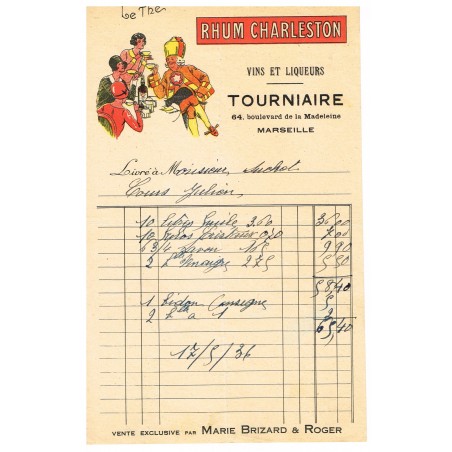 Le The
RHUM CHARLESTON
VINS ET LIQUEURS
TOURNIAIRE
64, boulevard de la Madeleine
MARSEILLE
Livré à Monsieur
Cours Julien
10 Litres Huile 3,60 36,00
0,70 7,00
6 3/4 Savon 165 9,90
2 Lt Vinaigre 275 5,50
58,40
1 Bidon Consigne 5
2 Lt à 1 2
65,40
17/5/36
VENTE EXCLUSIVE PAR MARIE BRIZARD & ROGER